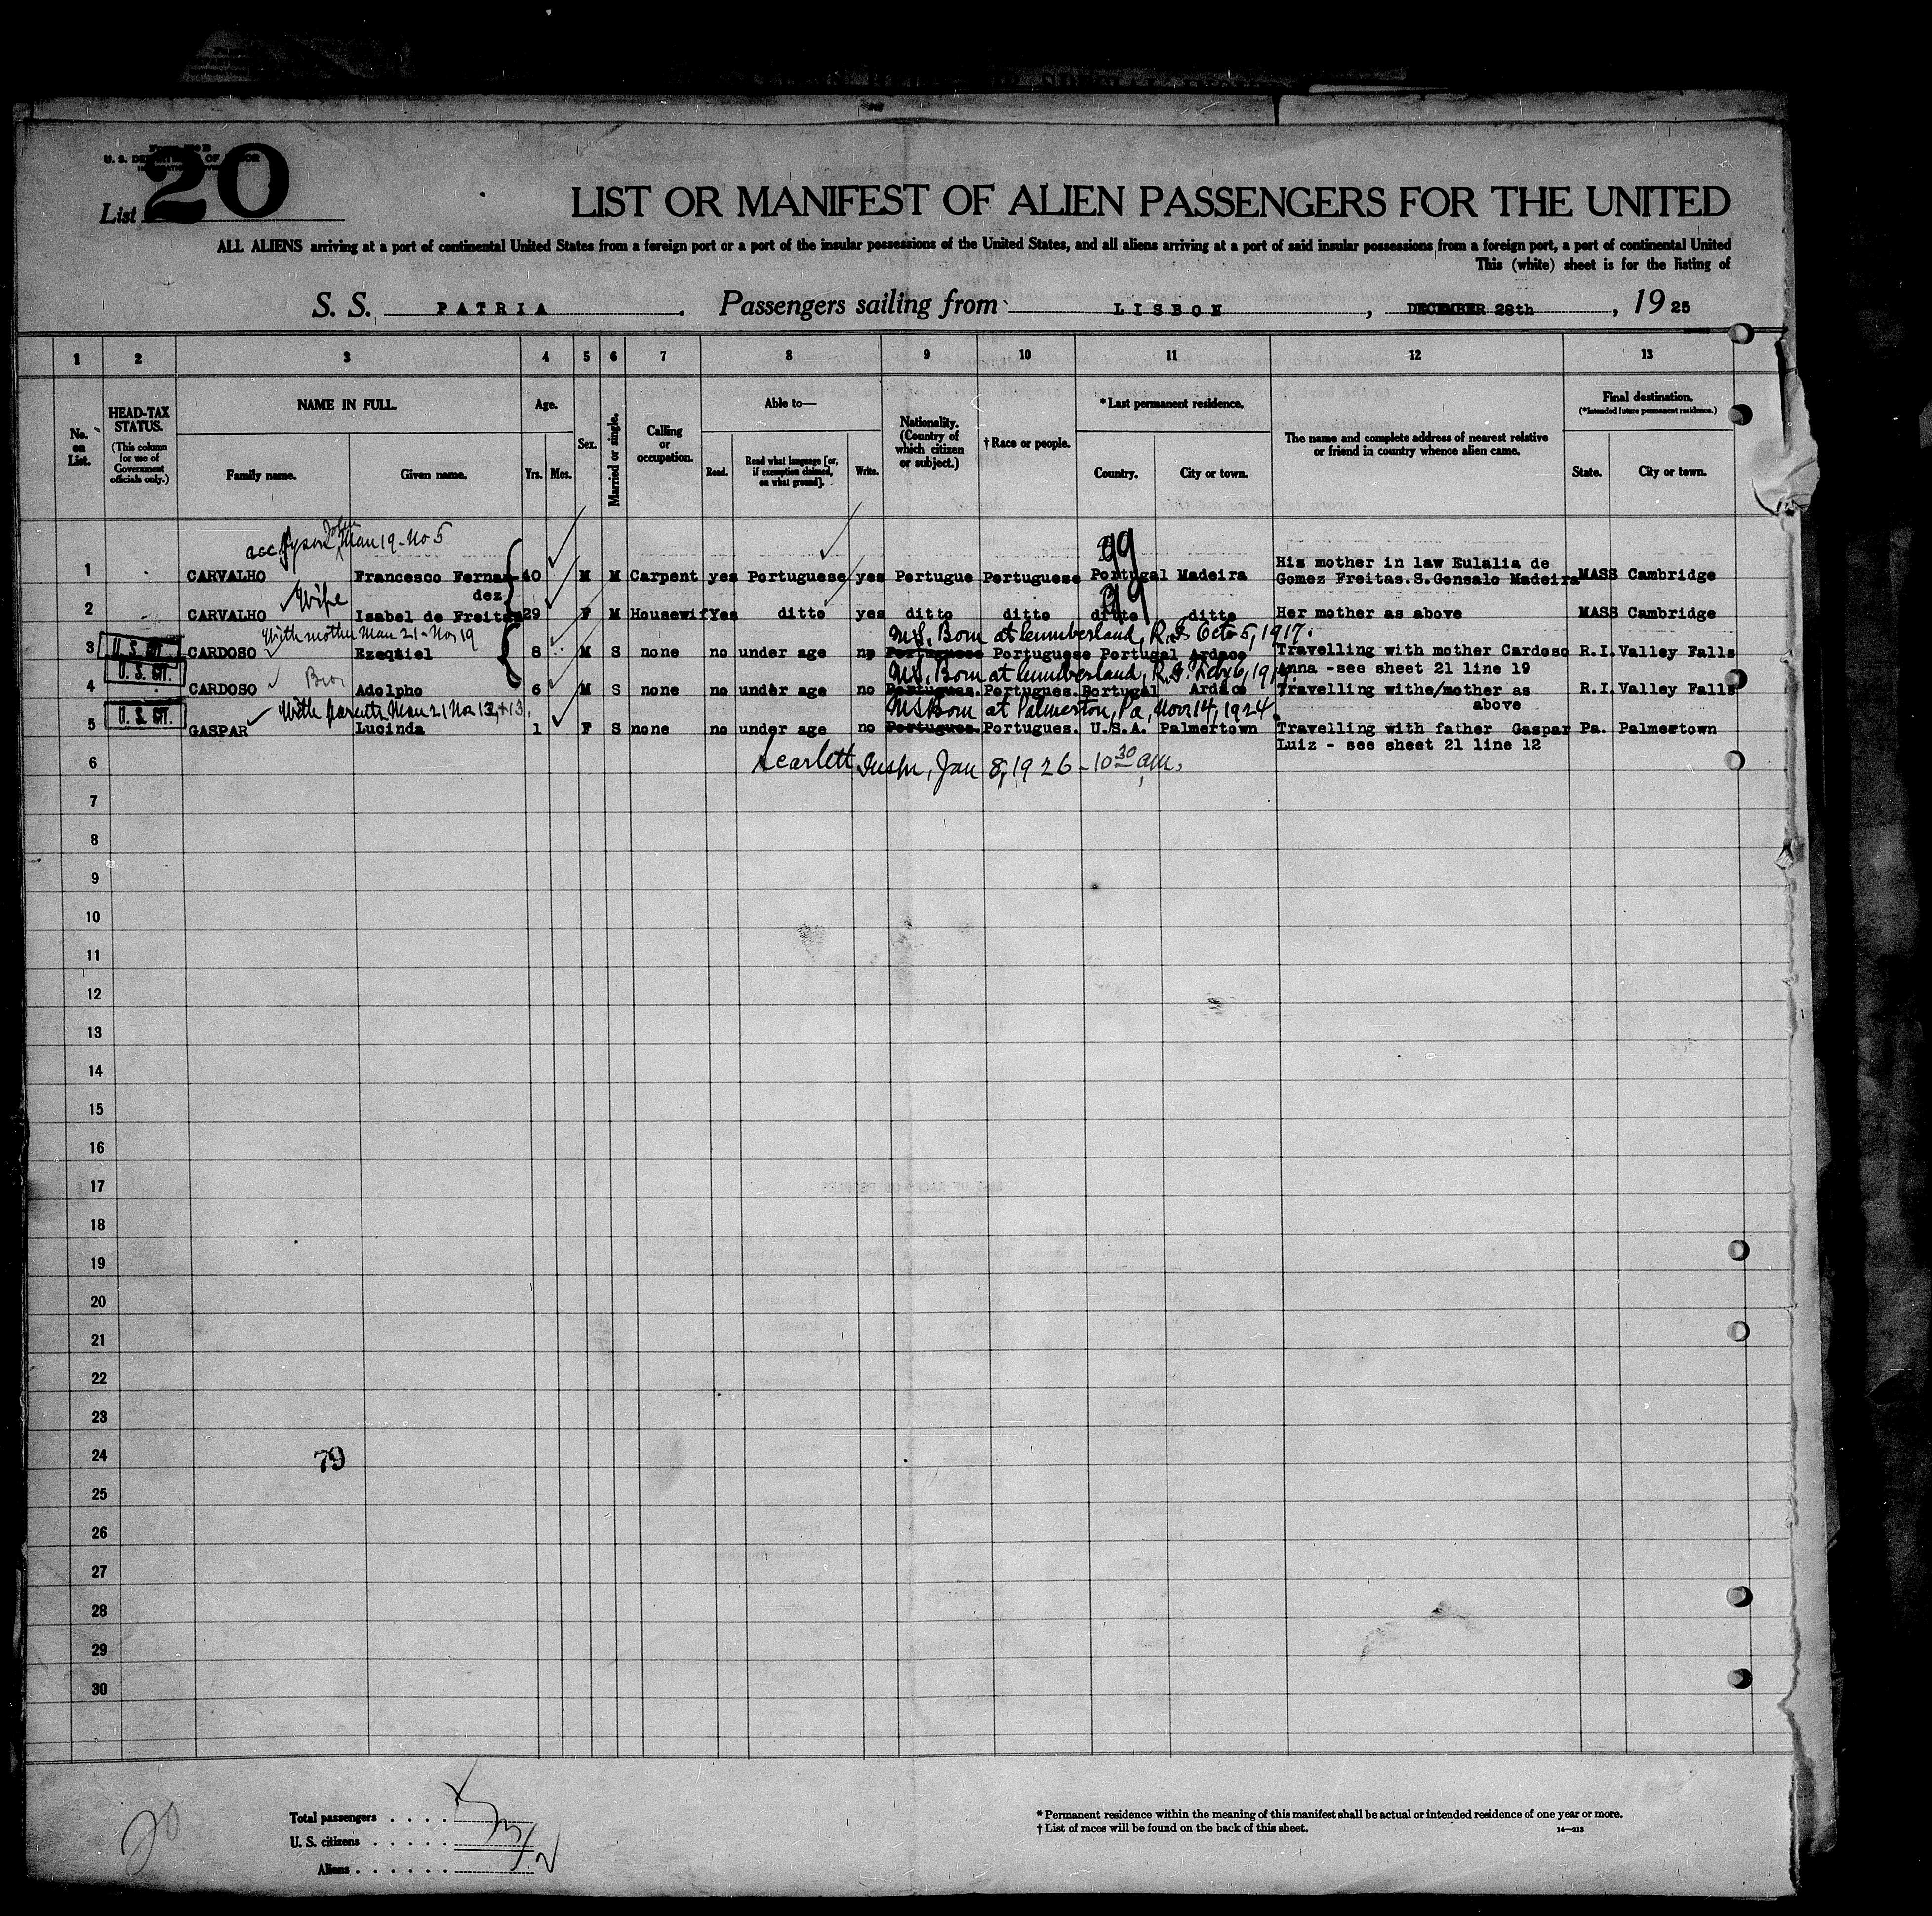 20
U. S. DEPARTMENT OF LABOR
List
LIST OR MANIFEST OF ALIEN PASSENGERS FOR THE UNITED
ALL ALIENS arriving at a port of continental United States from a foreign port or a port of the insular possessions of the United States, and all aliens arriving at a port of said insular possessions from a foreign port, a port of continental United
This (white) sheet is for the listing of
S. S. PATRIA. Passengers sailing from LISBON, DECEMBER 28th, 1925
1 2 3 4 5 6 7 8 9 10 11 12 13
No. on List.
HEAD-TAX STATUS. (This column for use of Government officials only.)
NAME IN FULL.
Family name. Given name.
Age.
Yrs. Mos.
Sex.
Married or single.
Calling or occupation.
Able to—
Read. Read what language [or, if exemption claimed, on what ground]. Write.
Nationality. (Country of which citizen or subject.)
† Race or people.
*Last permanent residence.
Country. City or town.
The name and complete address of nearest relative or friend in country whence alien came.
Final destination.
(*Intended future permanent residence.)
State. City or town.
John
Man 19 - No 5
99
1 CARVALHO Francesco Fernan- 40 M M Carpent yes Portuguese yes Portugue Portuguese Portugal Madeira His mother in law Eulalia de
dez Gomez Freitas.S.Gonsalo Madeira MASS Cambridge
Wife 99
2 CARVALHO Isabel de Freitas 29 F M Housewif Yes ditto yes ditto ditto ditto ditto Her mother as above MASS Cambridge
With mother Man 21 - No 19 U.S. Born at Cumberland, R.I. Oct 5, 1917.
3 U. S. CIT. CARDOSO Ezeqüiel 8 M S none no under age no Portuguese Portuguese Portugal Ardace Travelling with mother Cardoso R.I. Valley Falls
U.S. Born at Cumberland, R.I. Feby 6, 1919. Anna -see sheet 21 line 19
4 U. S. CIT. CARDOSO Bro Adolpho 6 M S none no under age no Portugues. Portugues. Portugal Ardace Travelling withe/mother as R.I. Valley Falls
above
With parents Man 21 No 12, + 13. US Born at Palmerton, Pa, Nov 14, 1924.
5 U. S. CIT. GASPAR Lucinda 1 F S none no under age no Portugues. Portugues. U.S.A. Palmertown Travelling with father Gaspar Pa. Palmertown
Luiz - see sheet 21 line 12
6 Scarlett Inspr, Jan 8, 1926 - 10 30 am.
7
8
9
10
11
12
13
14
15
16
17
18
19
20
21
22
23
24 79
25
26
27
28
29
30
20
Total passengers . . . . .
U. S. citizens . . . . . . 3
Aliens . . . . . . . 2
* Permanent residence within the meaning of this manifest shall be actual or intended residence of one year or more.
† List of races will be found on the back of this sheet.
14—213